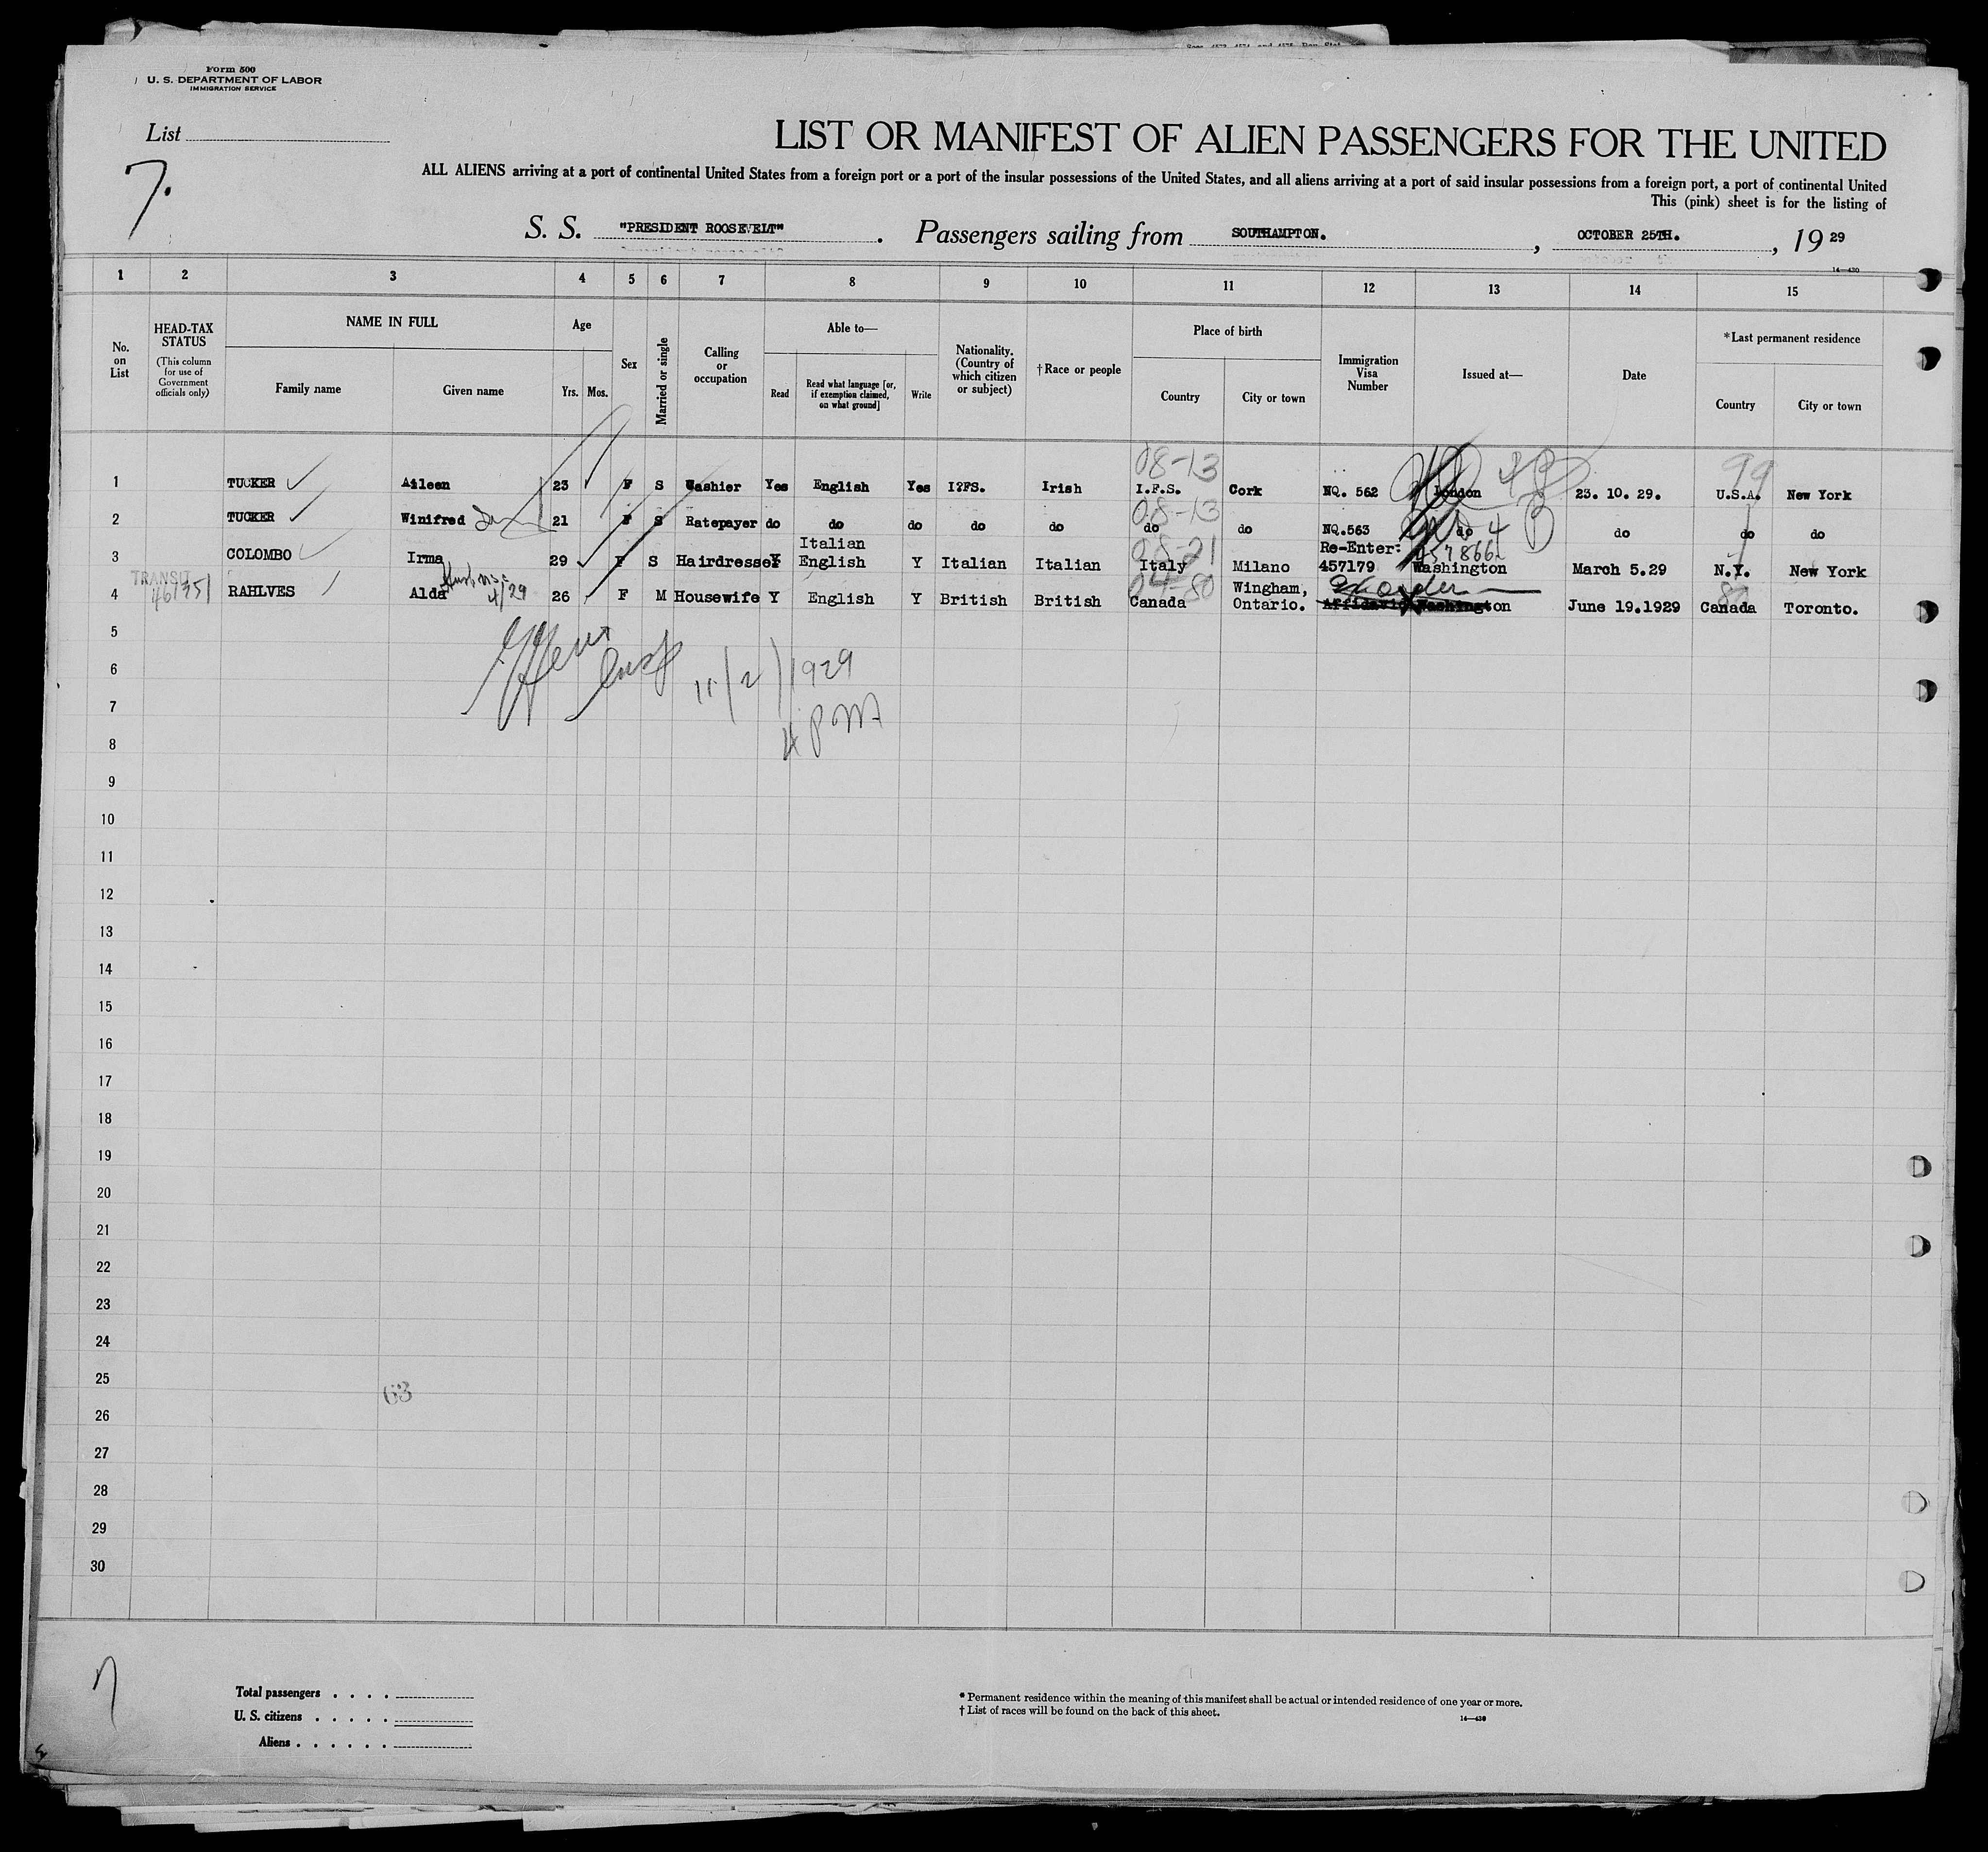 Form 500
U. S. DEPARTMENT OF LABOR
IMMIGRATION SERVICE
List
7.
LIST OR MANIFEST OF ALIEN PASSENGERS FOR THE UNITED
ALL ALIENS arriving at a port of continental United States from a foreign port or a port of the insular possessions of the United States, and all aliens arriving at a port of said insular possessions from a foreign port, a port of continental United
This (pink) sheet is for the listing of
S. S. "PRESIDENT ROOSEVELT". Passengers sailing from SOUTHAMPTON., OCTOBER 25TH., 19 29
14—430
1 2 3 4 5 6 7 8 9 10 11 12 13 14 15
No. on List
HEAD-TAX STATUS
(This column for use of Government officials only)
NAME IN FULL
Family name Given name
Age
Yrs. Mos.
Sex
Married or single
Calling or occupation
Able to—
Read Read what language [or, if exemption claimed, on what ground] Write
Nationality. (Country of which citizen or subject)
†Race or people
Place of birth
Country City or town
Immigration Visa Number
Issued at—
Date
*Last permanent residence
Country City or town
08-13 99
1 TUCKER Aileen 23 F S Washier Yes English Yes I?FS. Irish I.F.S. Cork NQ. 562 London 23. 10. 29. U.S.A. New York
08-13
2 TUCKER Winifred 21 F S Ratepayer do do do do do do do NQ.563 do do do do
Italian 08-21 Re-Enter: 457866
3 COLOMBO Irma 29 F S Hairdresser Y English Y Italian Italian Italy Milano 457179 Washington March 5.29 N.Y. New York
TRANSIT 4/29 Wingham,
4 RAHLVES Alda 26 F M Housewife Y English Y British British Canada Ontario. Affidavit Washington June 19.1929 Canada Toronto.
5
6 11/2/1929
7 4 PM
8
9
10
11
12
13
14
15
16
17
18
19
20
21
22
23
24
25
63
26
27
28
29
30
7
Total passengers . . . .
U. S. citizens . . . . .
Aliens . . . . . .
* Permanent residence within the meaning of this manifest shall be actual or intended residence of one year or more.
† List of races will be found on the back of this sheet.
14—430